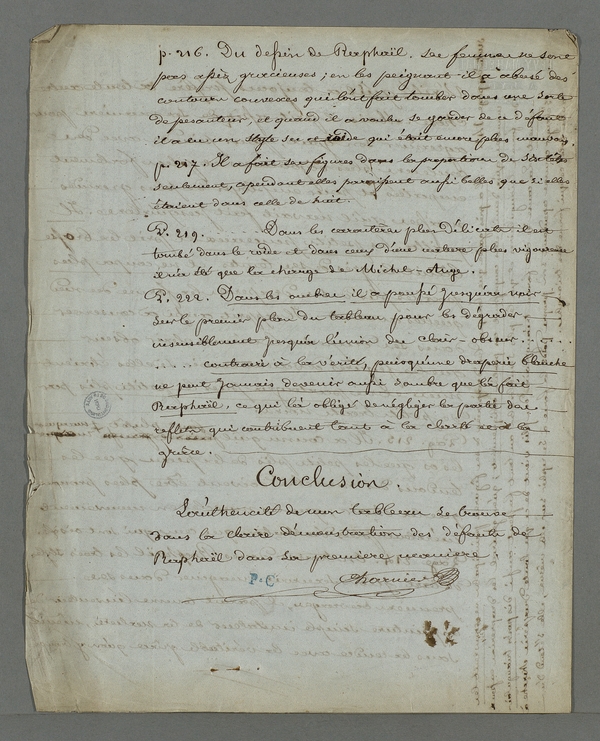 p. 216. Du dessin de Raphaël. Ses femmes ne sont
pas assez gracieuses; en les peignant il a abusé des
contours convexes qui l'ont fait tomber dans une sorte
de pesanteur, et quand il a voulu se garder de ce défaut
il a eu un style sec et roide qui était encore plus mauvais.
p. 217. Il a fait ses figures dans la proportion de six têtes
seulement, cependant elles paraissent aussi belles que si elles
étaient dans celle de huit.
P. 219. ........ Dans les caractères plus délicats il est
tombé dans le roide et dans ceux d'une nature plus vigoureuse
il n'a été que la charge de Michel-Ange.
P. 222. Dans les ombres il a poussé jusqu'au noir
sur le premier plan du tableau pour les dégrader
insensiblement jusqu'à l'union du clair-obscur....
..... contraire à la vérité, puisqu'une draperie blanche
ne peut jamais devenir aussi sombre que l'a fait
Raphaël, ce qui l'a obligé de négliger la partie des
reflets qui contribuent tant à la clarté et à la
grâce.
Conclusion.
L'authencité de mon tableau se trouve
dans la claire démonstration des défauts de
Raphaël dans sa première manière.
P.C. Charnier